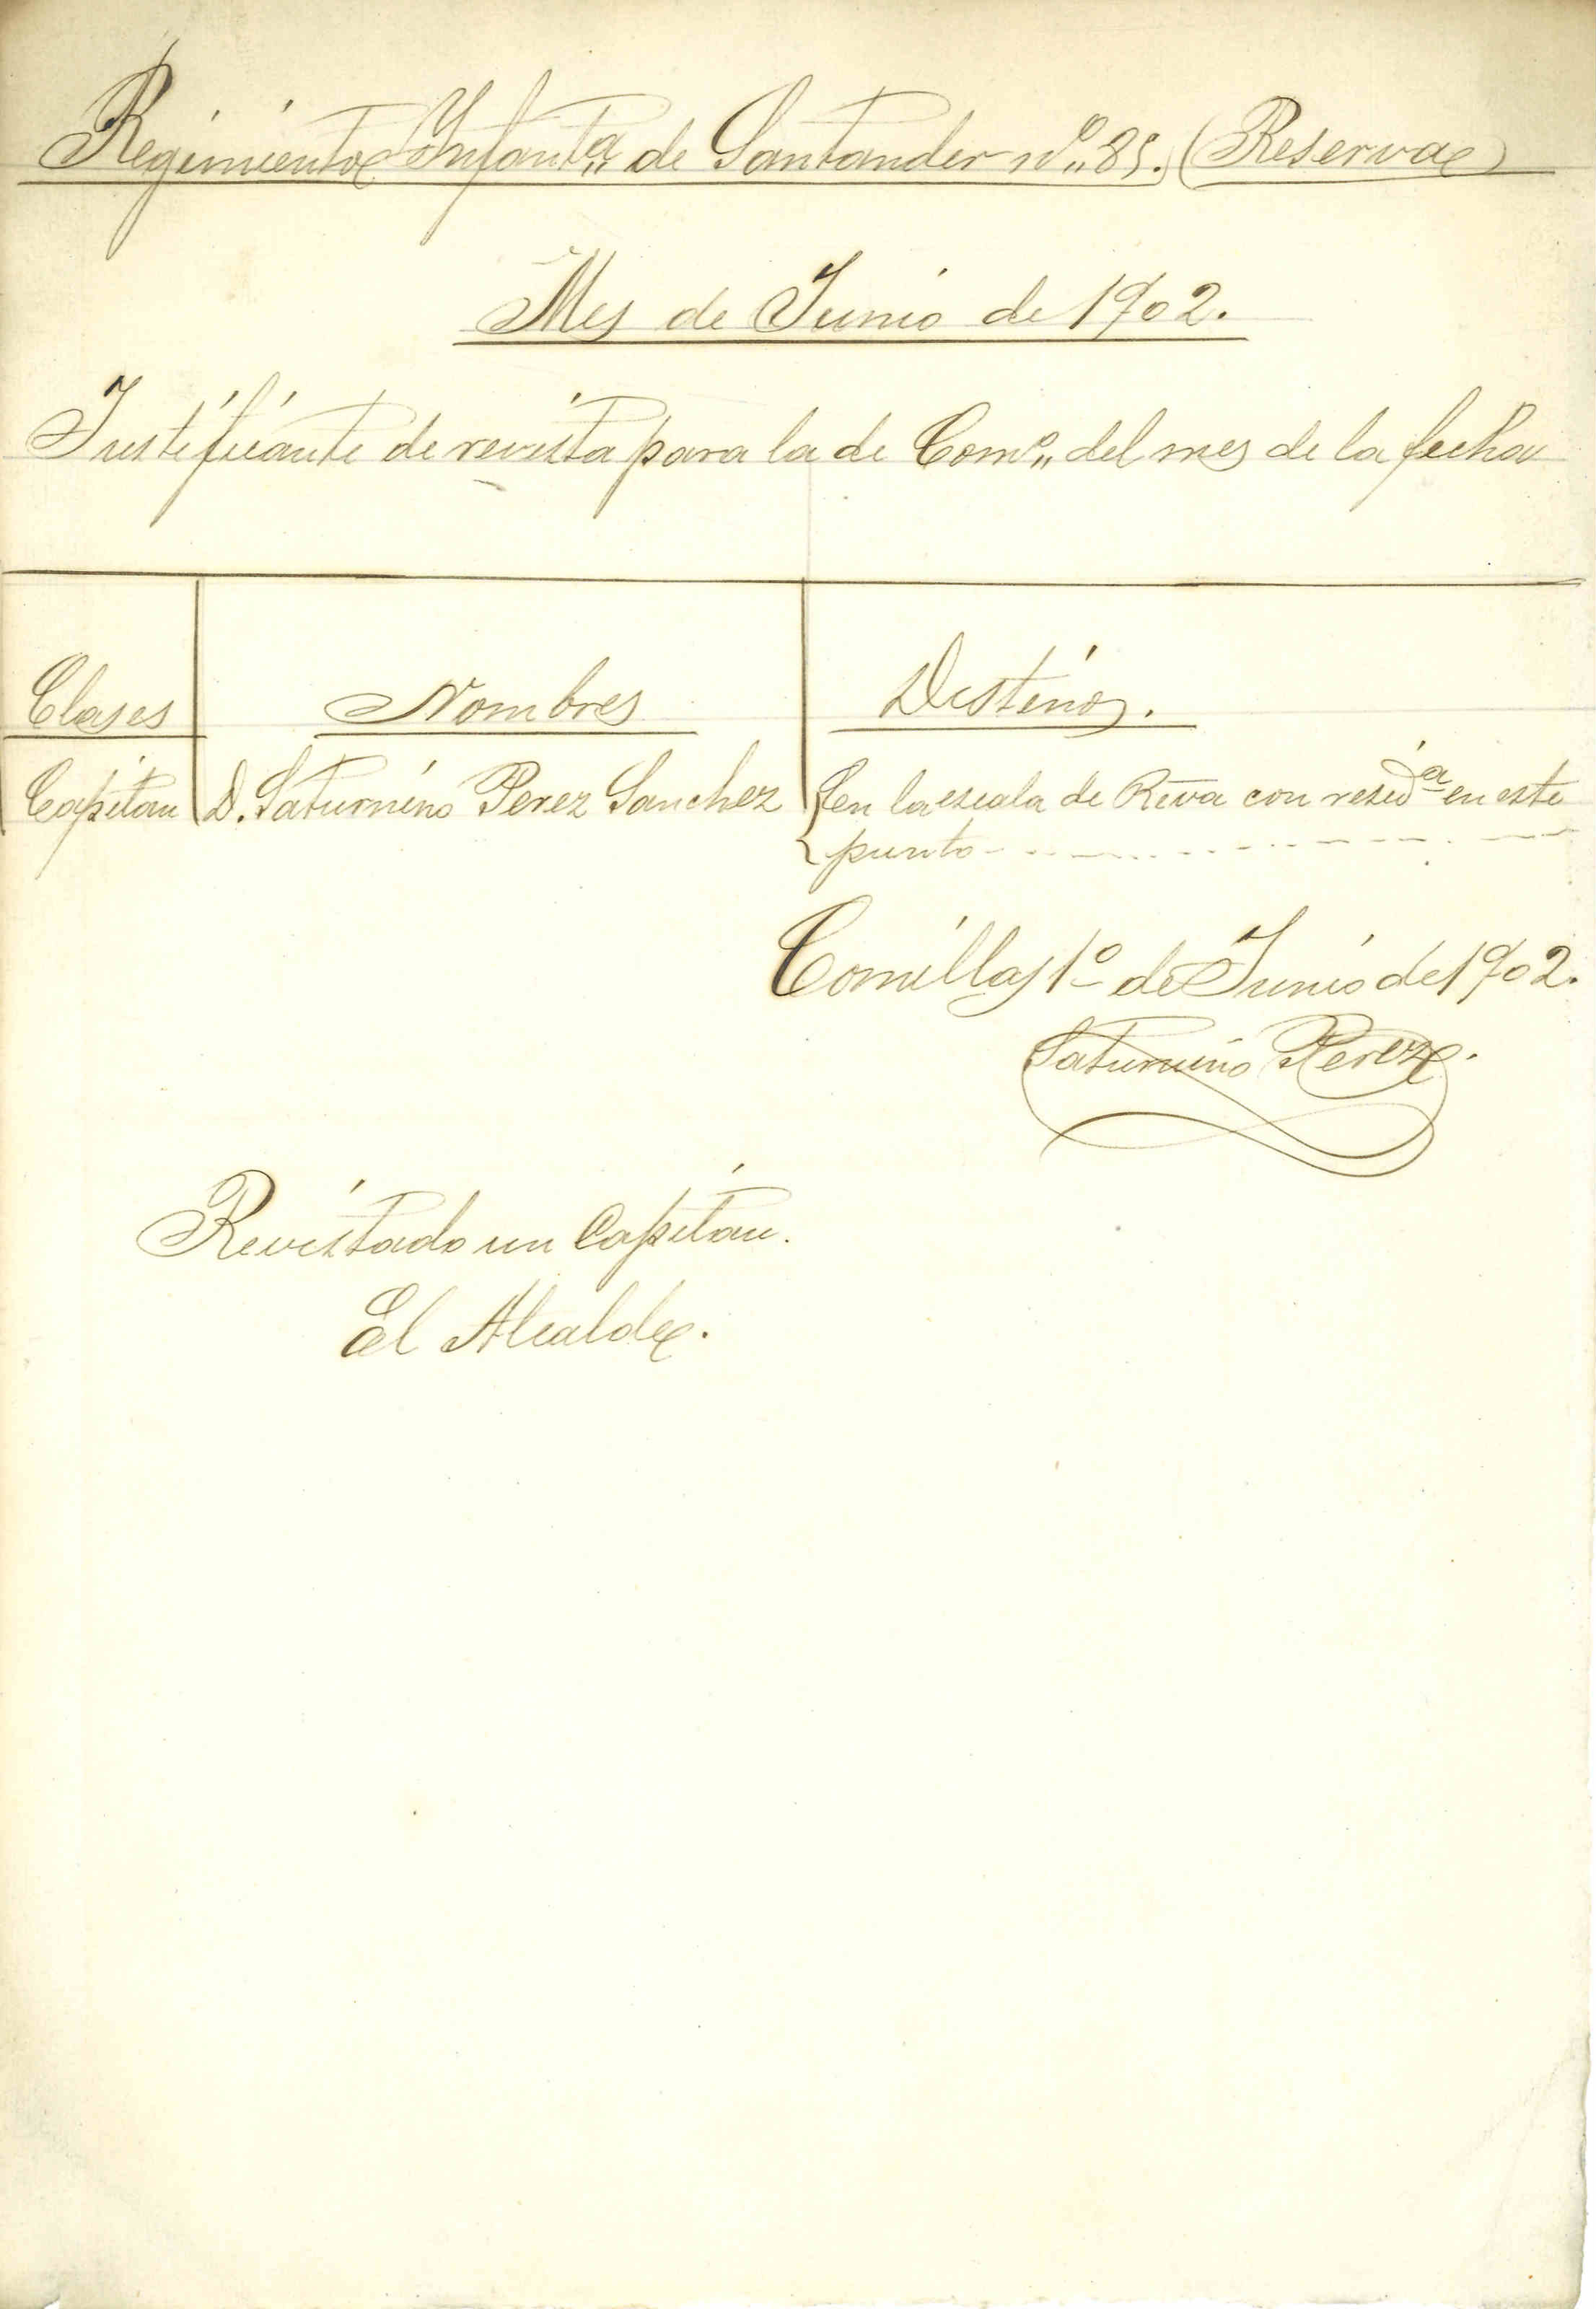 Regimiento Infantª de Santander nº 85. (Reserva)
Mes de Junio de 1902.
Justificante de revista para la de Comº del mes de la fecha
Clases Nombres Destinos.
Capitan D. Saturnino Perez Sanchez en la escala de Rva con residª en este
punto
Comillas 1º de Junio de 1902.
Saturnino Perez.
Revistado un Capitan.
El Alcalde.